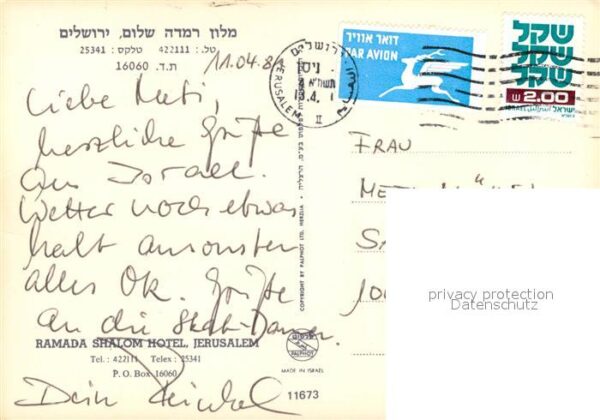 מלון רמדה שלום, ירושלים
טל.: 422111 טלקס: 25341
ת.ד. 16060
11.04.81
Liebe Meti,
herzliche Grüße
aus Israel.
Wetter noch etwas
kalt ansonsten
alles OK. Grüße
an die Skat-Damen.
RAMADA SHALOM HOTEL, JERUSALEM
Tel.: 422111 Telex: 25341
P. O. Box 16060
Dein
COPYRIGHT BY PALPHOT LTD. HERZLIA
PALPHOT
MADE IN ISRAEL
11673
ירושלים
ניסן
תשמ"א
JERUSALEM
דואר אוויר
PAR AVION
שקל
שקל
שקל
2.00
ישראל ISRAEL
FRAU
privacy protection
Datenschutz